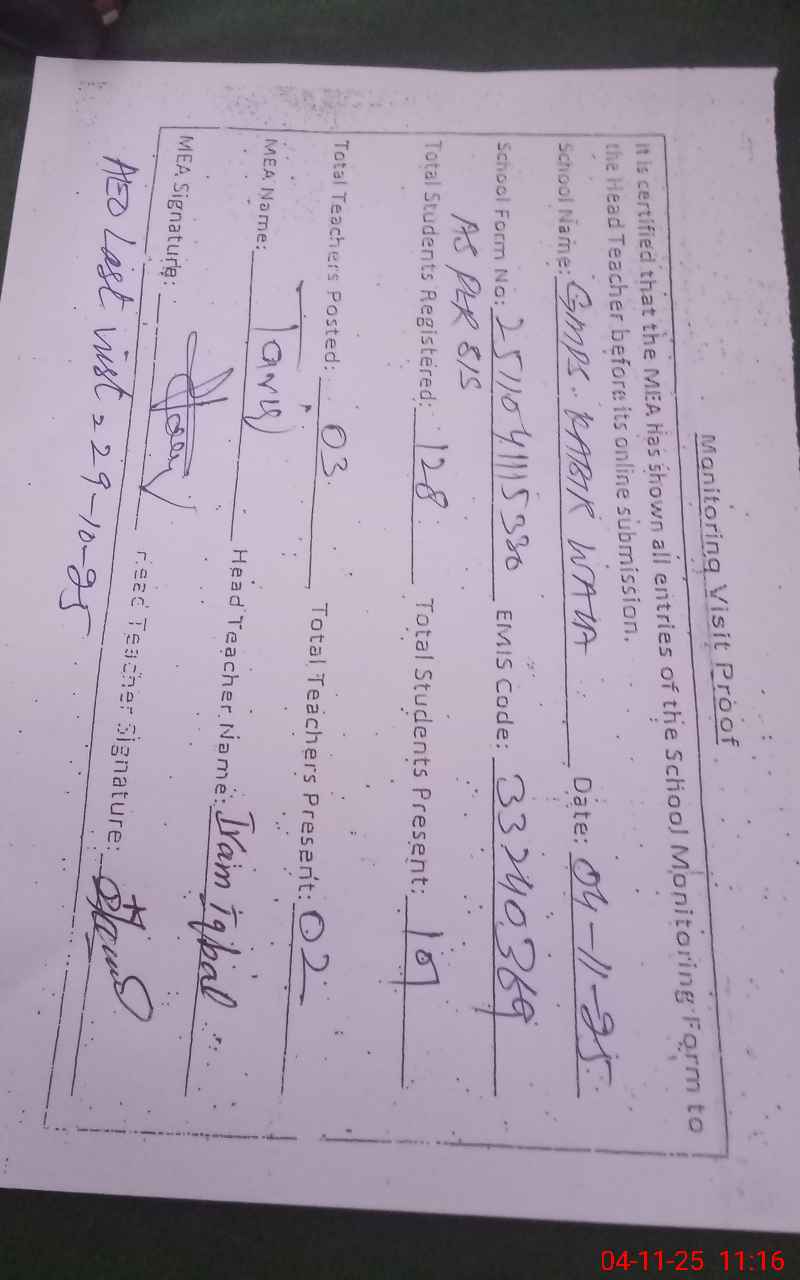 Monitoring Visit Proof
It is certified that the MEA has shown all entries of the School Monitoring Form to
the Head Teacher before its online submission.
School Name: GMPS. KABIR WALA Date: 04-11-25
School Form No: 2511041115380 EMIS Code: 33240369
AS PER SIS
Total Students Registered: 128 Total Students Present: 101
Total Teachers Posted: 03 Total Teachers Present: 02
MEA Name: Tariq Head Teacher Name: Iram Iqbal
MEA Signature: Head Teacher Signature:
AEO Last visit = 29-10-25
04-11-25 11:16